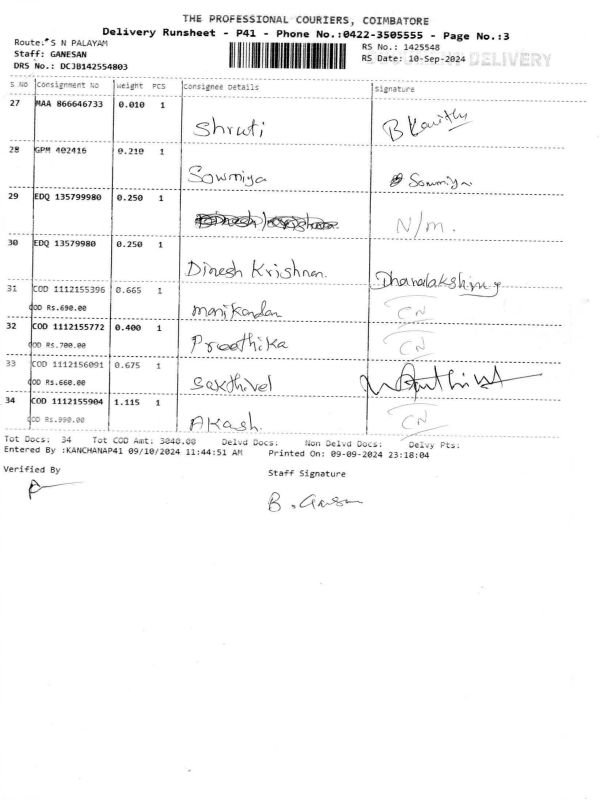 THE PROFESSIONAL COURIERS, COIMBATORE
Delivery Runsheet - P41 - Phone No.:0422-3505555 - Page No.:3
Route: S N PALAYAM
Staff: GANESAN
DRS No.: DCJB142554803
RS No.: 1425548
RS Date: 10-Sep-2024
DELIVERY
S.No Consignment No Weight PCS Consignee Details Signature
27 MAA 866646733 0.010 1
Shruti B Kavitha
28 GPM 402416 0.210 1
Sowmiya Sowmiya
29 EDQ 135799980 0.250 1
N/m.
30 EDQ 13579980 0.250 1
Dinesh Krishnan. Dhanalakshimy
31 COD 1112155396 0.665 1
COD Rs.690.00 manikandan CN
32 COD 1112155772 0.400 1
COD Rs.700.00 Preethika CN
33 COD 1112156091 0.675 1
COD Rs.660.00 Sakthivel
34 COD 1112155904 1.115 1
COD Rs.990.00 Akash. CN
Tot Docs: 34 Tot COD Amt: 3040.00 Delvd Docs: Non Delvd Docs: Delvy Pts:
Entered By :KANCHANAP41 09/10/2024 11:44:51 AM Printed On: 09-09-2024 23:18:04
Verified By Staff Signature
B. Ganesan